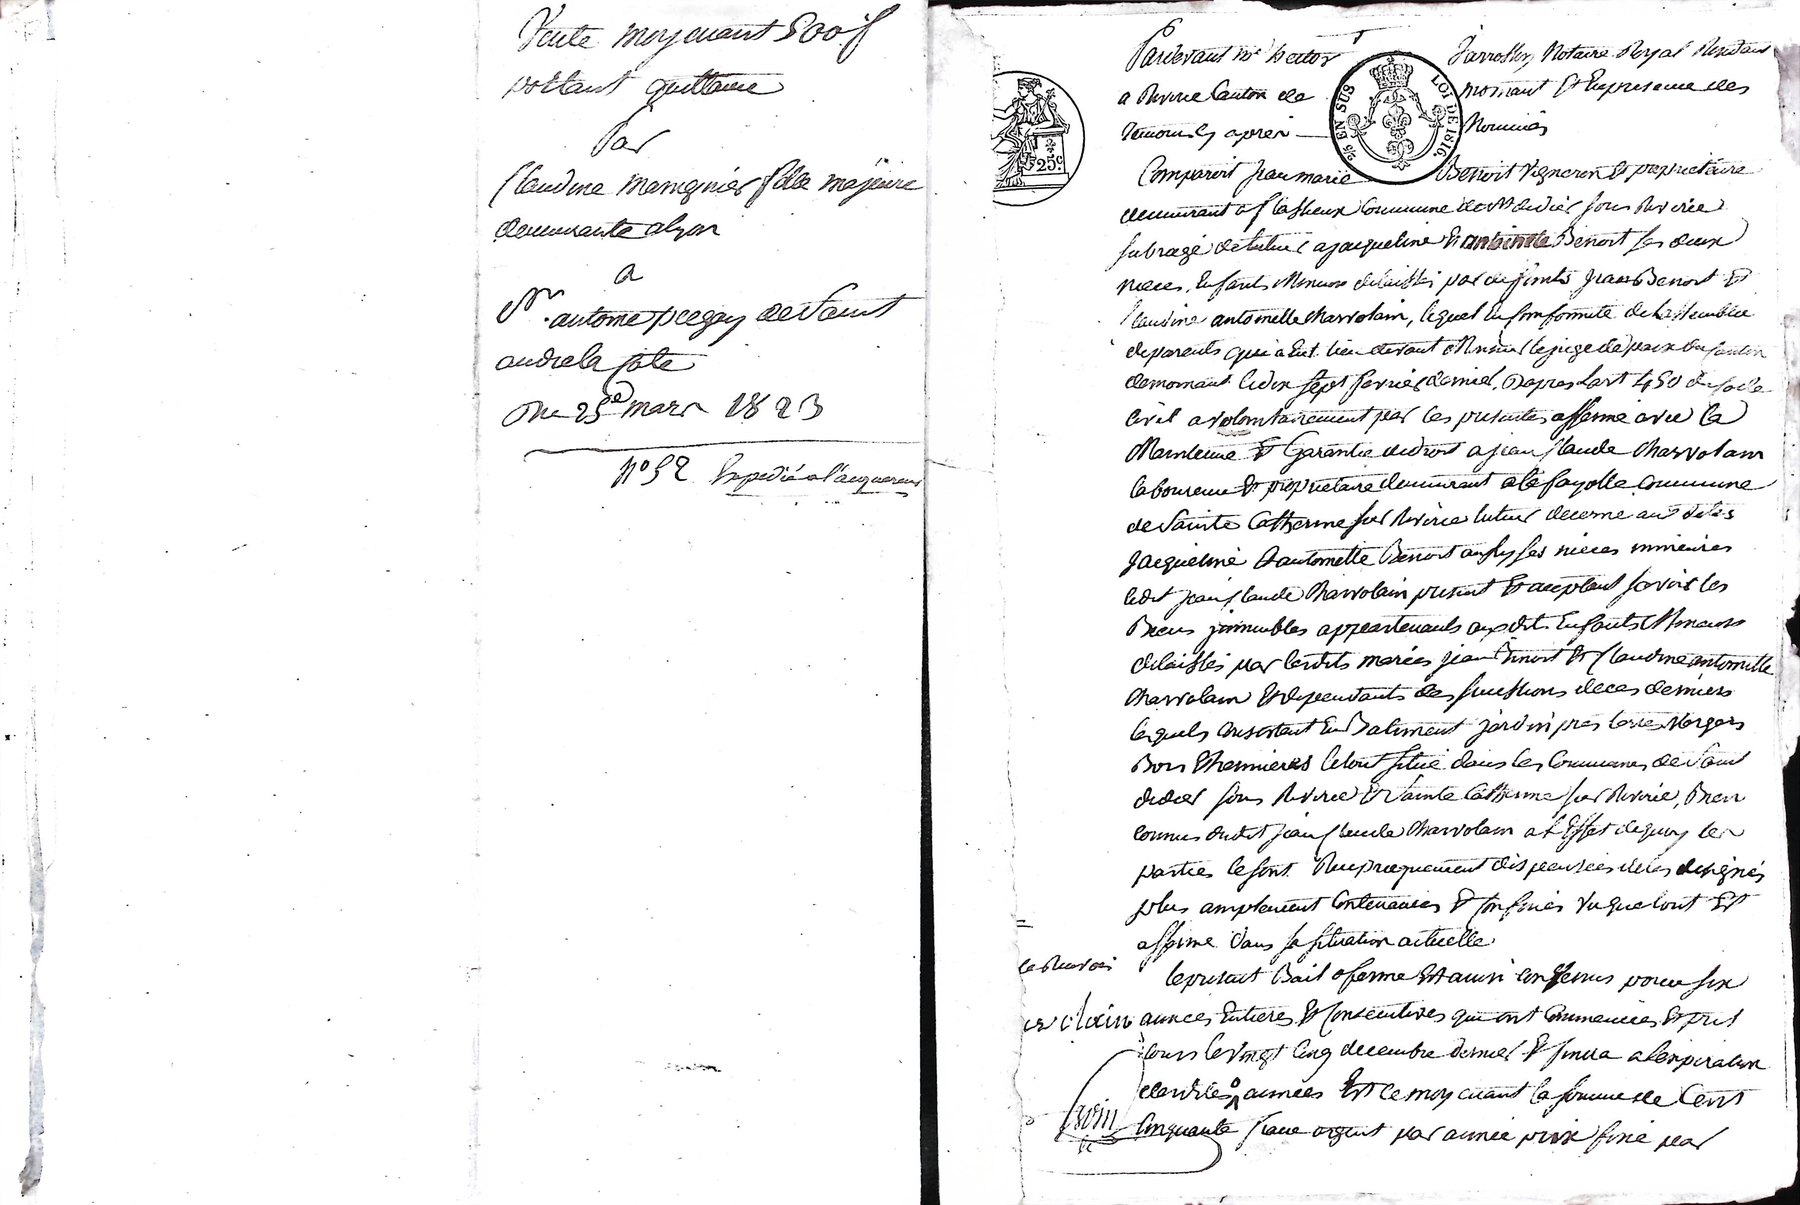 Vente moyenant 500 f
portant quittance
Par
Claudine manignier fille majeure
demeurante a lyon
a
Sr. antoine pregay de Saint
andre la cote
Du 25e mars 1823
N° 52 Expedié a l'acquereur
Pardevant Me hector Jarrosson Notaire Royal Residant
a Riverie Canton de mornant Et En presence des
temoins cy apres Nommés
Comparoit jean marie Benoit Vigneron Et proprietaire
demeurant a flassieux Commune de st didier sous Riverie
subrogé detuteur a jacqueline Et antoinette Benoit ses deux
nieces, Enfants Mineurs delaissés par defunts jean Benoit Et
Claudine antoinette charvolain, lequel En Conformité de L'assemblée
deparents qui a Eut lieu devant Monsieur le juge de paix du Canton
demornant le dix sept fevrier dernier, D'apres L'art 450 du Code
Civil a volontairement par les presentes affermé avec la
Maintenue Et Garantie de droit a jean Claude charvolain
laboureur Et proprietaire demeurant a la fayolle Commune
de Sainte Catherine sur Riverie tuteur decerné aux dites
Jacqueline Et antoinette Benoit aussy ses nieces mineures
ledit jean Claude Charvolain present Et acceptant savoir les
Biens immeubles appartenants auxdits Enfants Mineurs
delaissés par lesdits mariés jean Benoit Et Claudine antoinette
charvolain Et dependants des successions de ces derniers
lesquels Consistent En Batiment jardin pres terres Vergers
Bois Et hermieres le tout situé dans les Communes de Saint
didier sous Riverie Et Sainte Catherine sur Riverie, Bien
connus dudit jean Claude Charvolain a l'Effet dequoy les
parties le sont Reciproquement dispensées de les designés
plus amplement Contenances Et Confinés Vu que tout Est
affermé dans sa situation actuelle
le present Bail a ferme Est ainsi Consentis pour six
années Entieres Et Consecutives qui ont Commencées Et pris
Cours le Vingt Cinq decembre dernier Et finira a l'expiration
desdites années Est ce moyenant la somme de Cent
Cinquante francs argent par année prix fixé par
EN SUS
LOI DE 1816.
25c.